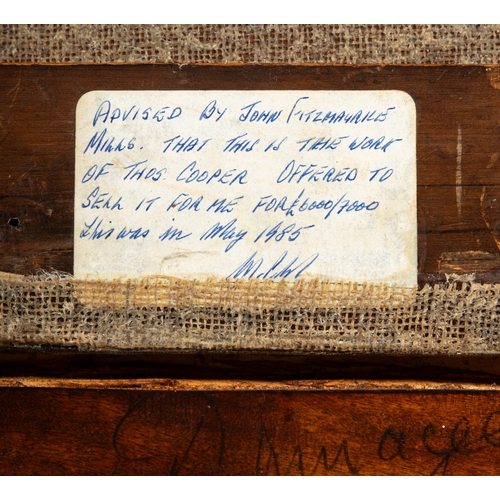 ADVISED BY JOHN FITZMAURICE
MILLS. THAT THIS IS THE WORK
OF THOS COOPER OFFERED TO
SELL IT FOR ME FOR £6000/7000
this was in May 1985